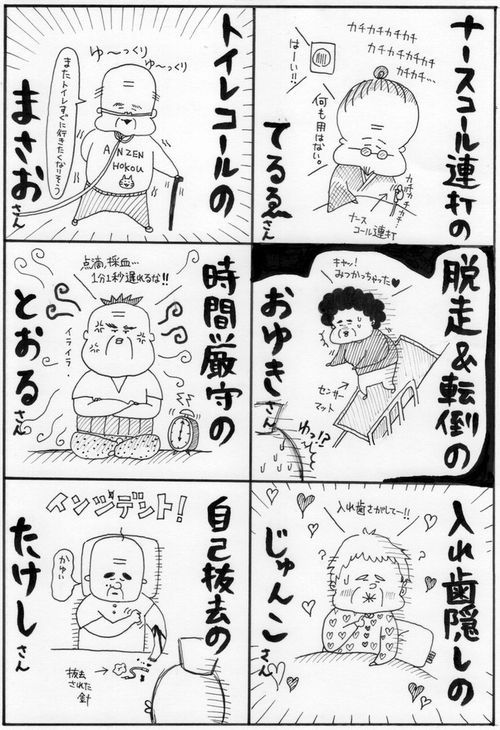 ナースコール連打の
てるゑさん
カチカチカチカチ
カチカチカチカチ
カチカチ…
はーい!!
何も用はない。
カチカチカチ…
ナース
コール連打
トイレコールの
まさおさん
ゆ〜っくり
ゆ〜っくり
またトイレすぐに行きたくなりそう
ANZEN
HOKOU
脱走&転倒の
おゆきさん
キャハ!
みつかっちゃった♥
センサー
マット
ゆっ!?
時間厳守の
とおるさん
点滴、採血…
1分1秒遅れるな!!
イライラ・・
入れ歯隠しの
じゅんこさん
入れ歯さがしてー!!
自己抜去の
たけしさん
インシデント!
かゆい
抜去
された
針